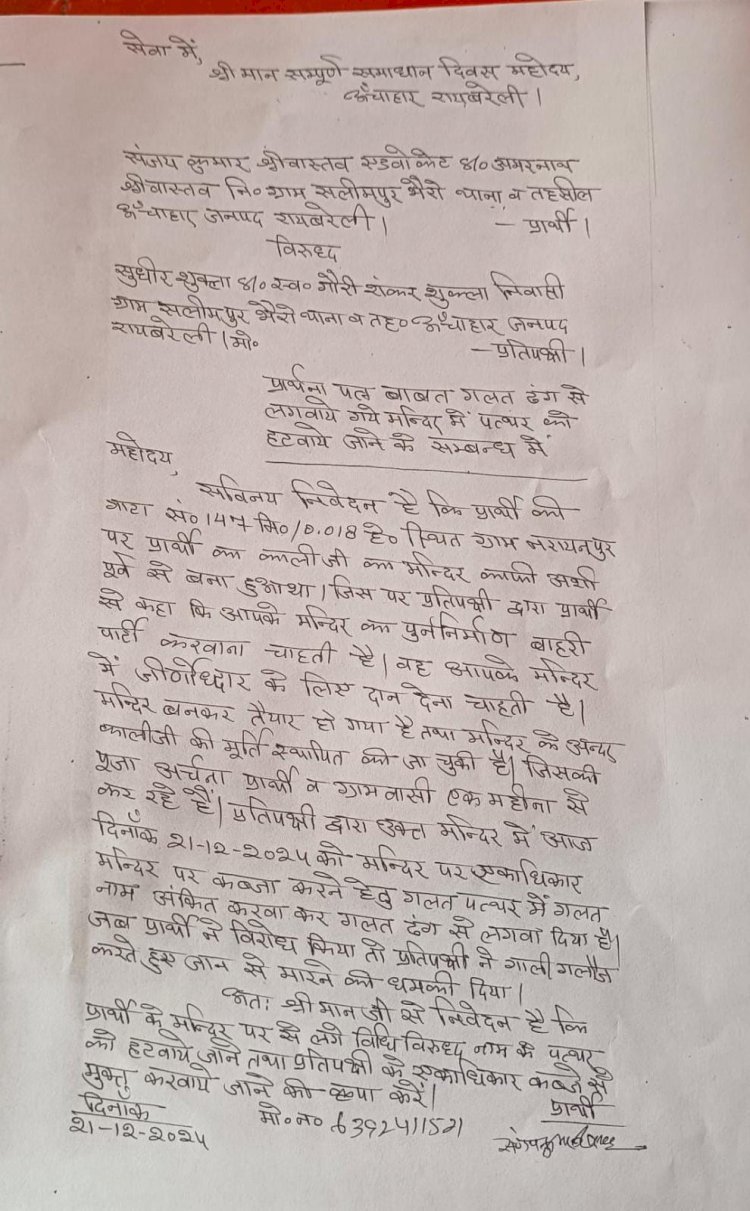 सेवा में,
श्री मान सम्पूर्ण समाधान दिवस महोदय,
ऊँचाहार रायबरेली।
संजय कुमार श्रीवास्तव एडवोकेट S/० अमरनाथ
श्रीवास्तव नि० ग्राम सलीमपुर भैरो थाना व तहसील
ऊँचाहार जनपद रायबरेली। — प्रार्थी।
विरुध्द
सुधीर शुक्ला S/० स्व० गौरी शंकर शुक्ला निवासी
ग्राम सलीमपुर भैरो थाना व तह० ऊँचाहार जनपद
रायबरेली। मो० — प्रतिपक्षी।
प्रार्थना पत्र बाबत गलत ढंग से
लगवाये गये मन्दिर में पत्थर को
हटवाये जाने के सम्बन्ध में
महोदय,
सविनय निवेदन है कि प्रार्थी की
गाटा सं० 147 मि०/0.018 हे० स्थित ग्राम नरायनपुर
पर प्रार्थी का कालीजी का मन्दिर काफी अर्शा
पूर्व से बना हुआ था। जिस पर प्रतिपक्षी द्वारा प्रार्थी
से कहा कि आपके मन्दिर का पुर्ननिर्माण बाहरी
पार्टी करवाना चाहती है। वह आपके मन्दिर
में जीर्णोध्दार के लिए दान देना चाहती है।
मन्दिर बनकर तैयार हो गया है तथा मन्दिर के अन्दर
कालीजी की मूर्ति स्थापित की जा चुकी है। जिसकी
पूजा अर्चना प्रार्थी व ग्रामवासी एक महीना से
कर रहे हैं। प्रतिपक्षी द्वारा उक्त मन्दिर में आज
दिनाँक 21-12-2024 को मन्दिर पर एकाधिकार
मन्दिर पर कब्जा करने हेतु गलत पत्थर में गलत
नाम अंकित करवा कर गलत ढंग से लगवा दिया है।
जब प्रार्थी ने विरोध किया तो प्रतिपक्षी ने गाली गलौज
करते हुए जान से मारने की धमकी दिया।
अतः श्री मान जी से निवेदन है कि
प्रार्थी के मन्दिर पर से लगे विधि विरुध्द नाम के पत्थर
को हटवाये जाने तथा प्रतिपक्षी के एकाधिकार कब्जे से
मुक्त करवाये जाने की कृपा करें।
दिनाँक मो० न० 6392411521 प्रार्थी
21-12-2024